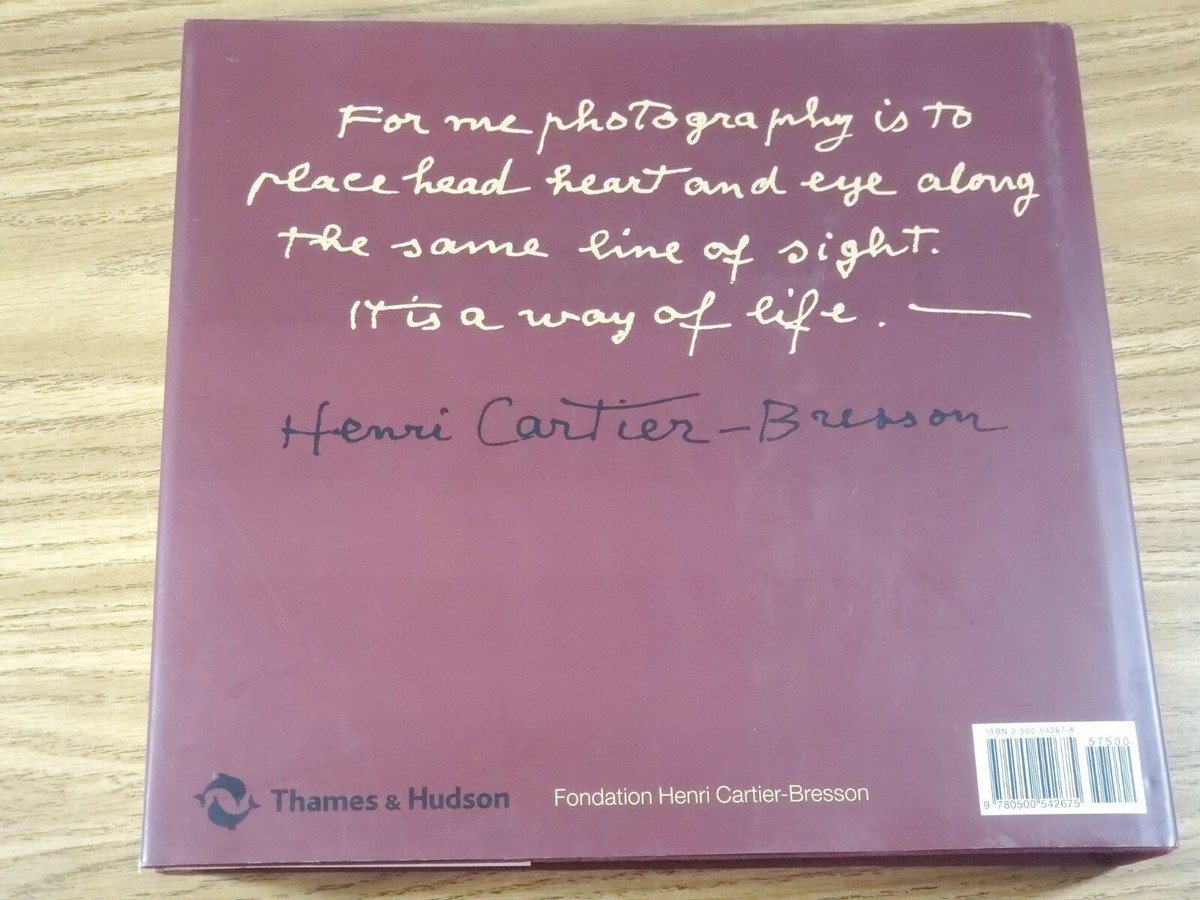 For me photography is to
place head heart and eye along
the same line of sight.
It is a way of life. —
Henri Cartier-Bresson
Thames & Hudson
Fondation Henri Cartier-Bresson
ISBN 0-500-54267-8
57500
9 780500 542675